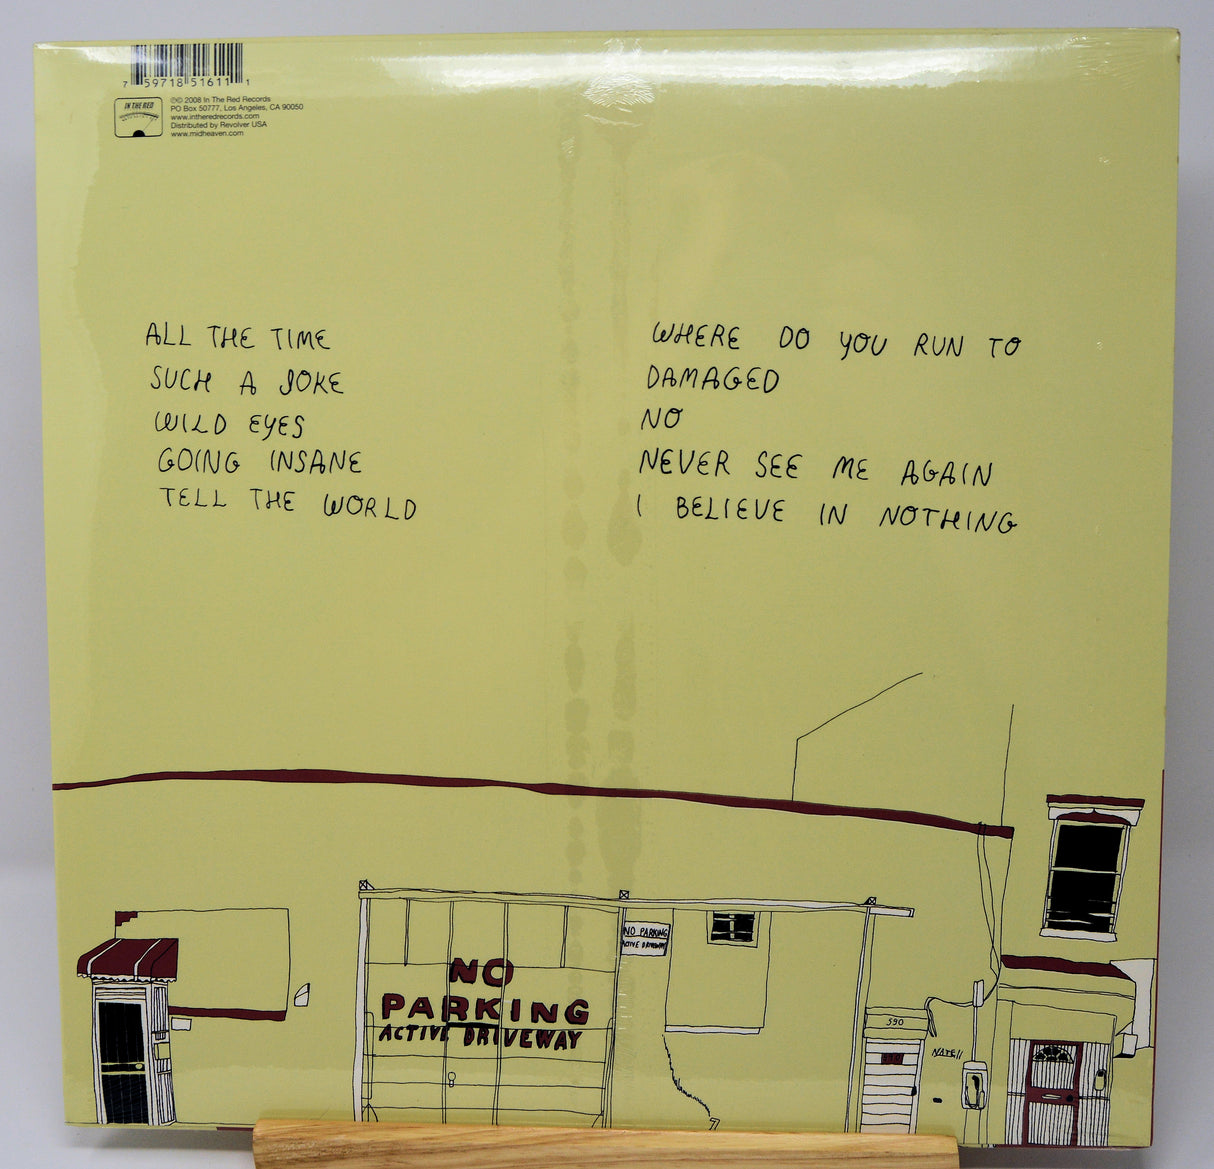 7 59718 51611 1
IN THE RED
℗© 2008 In The Red Records
PO Box 50777, Los Angeles, CA 90050
www.intheredrecords.com
Distributed by Revolver USA
www.midheaven.com
ALL THE TIME
SUCH A JOKE
WILD EYES
GOING INSANE
TELL THE WORLD
WHERE DO YOU RUN TO
DAMAGED
NO
NEVER SEE ME AGAIN
I BELIEVE IN NOTHING
NO
PARKING
ACTIVE DRIVEWAY
NO PARKING
ACTIVE DRIVEWAY
590